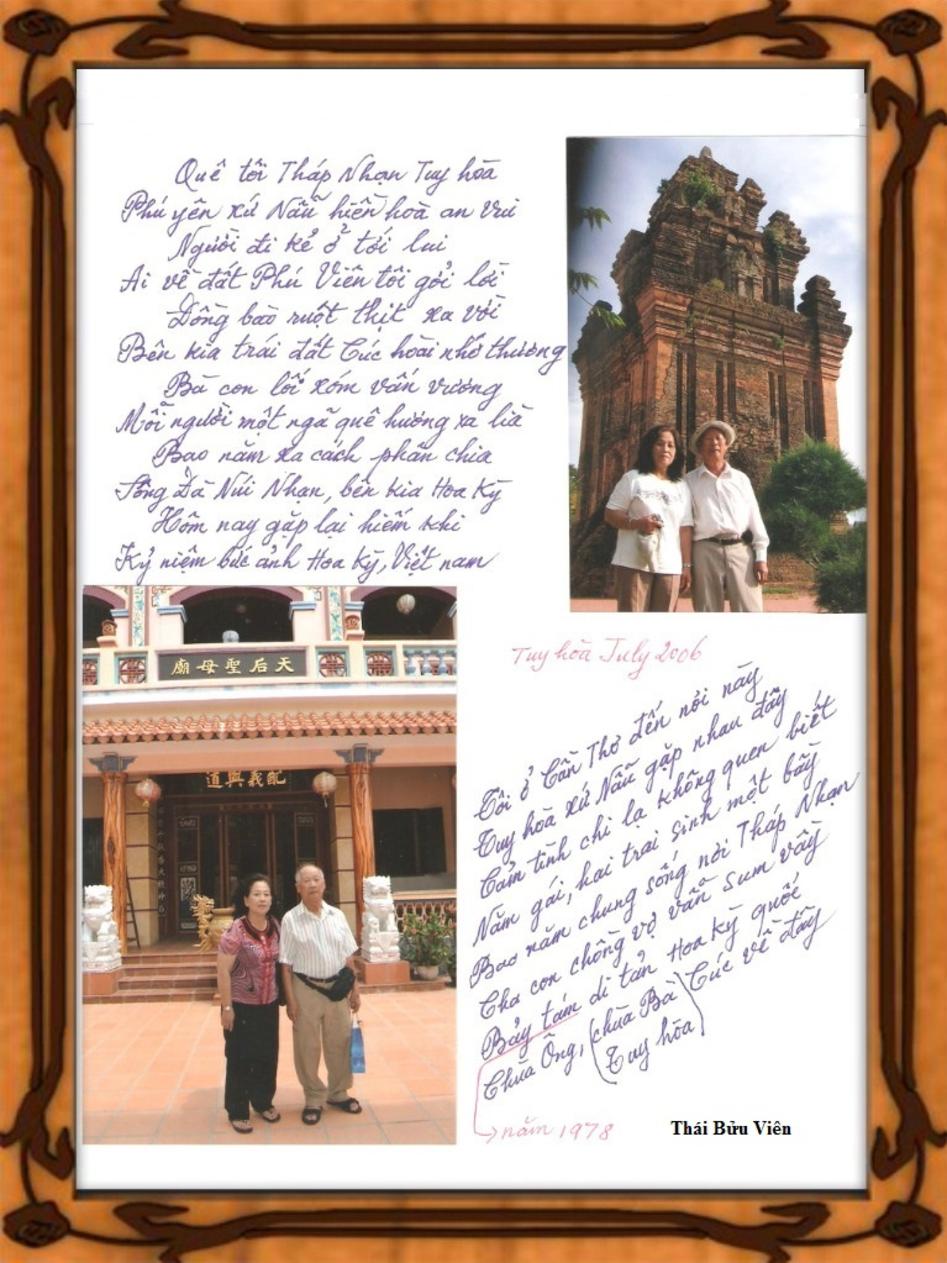 Quê tôi Tháp Nhạn Tuy hòa
Phú yên xứ Nẫu hiền hoà an vui
Người đi kẻ ở tới lui
Ai về đất Phú Viên tôi gởi lời
Đồng bào ruột thịt xa vời
Bên kia trái đất Cúc hoài nhớ thương
Bà con lối xóm vấn vương
Mỗi người một ngã quê hương xa lìa
Bao năm xa cách phân chia
Sông Đà Núi Nhạn, bên kia Hoa Kỳ
Hôm nay gặp lại hiếm khi
Kỷ niệm bức ảnh Hoa Kỳ, Việt nam
Tuy hoà July 2006
廟母聖后天
道興義配
Tôi ở Cần Thơ đến nơi này
Tuy hòa xứ Nẫu gặp nhau đây
Cảm tình chi lạ không quen biết
Năm gái, hai trai sinh một bầy
Bao năm chung sống nơi Tháp Nhạn
Cha con chồng vợ vẫn sum vầy
Bảy tám di tản Hoa kỳ quốc
Chùa Ông, (chùa Bà) Cúc về đây
Tuy hòa
năm 1978
Thái Bửu Viên